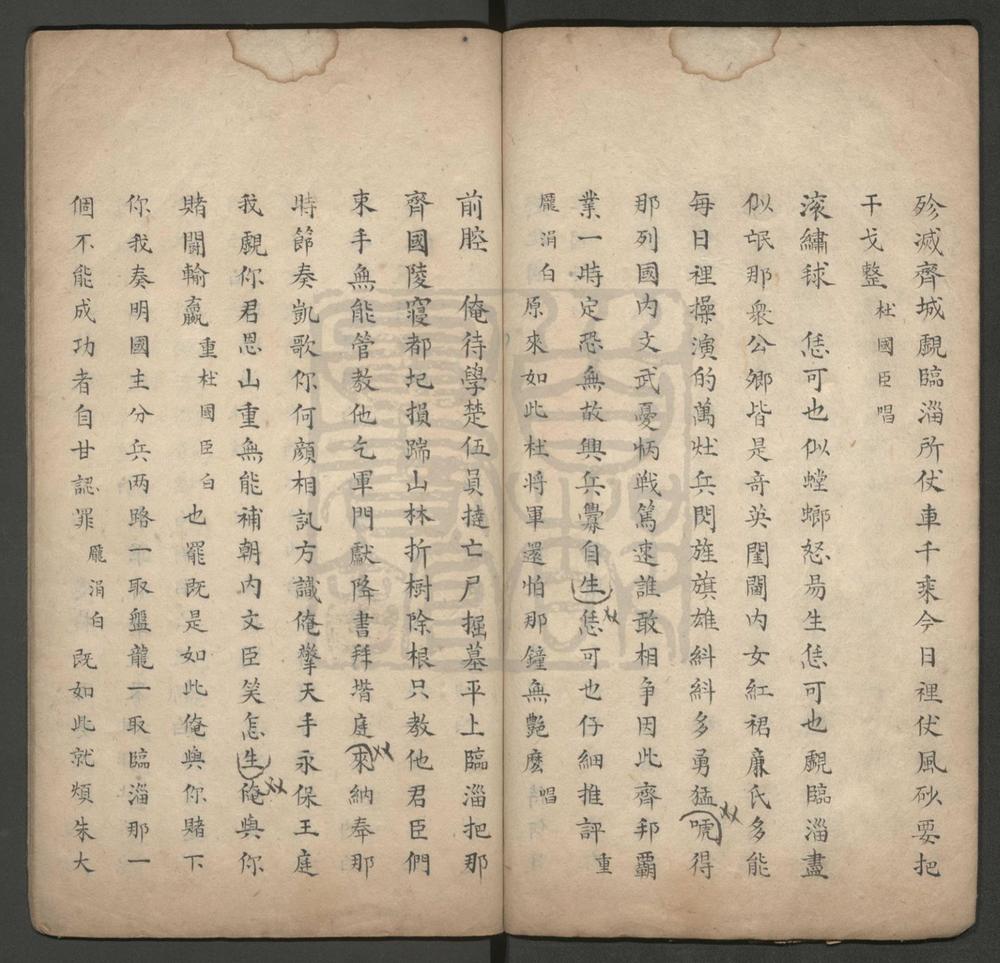 殄滅齊城覷臨淄所仗車千乘今日裡伏風砂要把
干戈整 杜國臣唱
滾繡球 恁可也似螳螂怒易生恁可也覷臨淄盡
似氓那衆公卿皆是奇英閨閫内女紅裙廉氏多能
每日裡操演的萬灶兵閃旌旗雄糾糾多勇猛唬得
那列國内文武憂怲戰篤速誰敢相争因此齊邦霸
業一時定恐無故興兵釁自生恁可也仔細推評 重
龐涓白 原來如此杜将軍還怕那鐘無艷麽 唱
前腔 俺待學楚伍員撻亡尸掘墓平上臨淄把那
齊國陵寢都圮損踹山林折樹除根只教他君臣們
束手無能管教他乞軍門獻降書拜堦庭來納奉那
時節奏凱歌你何顔相訊方識俺擎天手永保王庭
我覷你君恩山重無能補朝内文臣笑怎生俺與你
賭鬪輸贏 重杜國臣白 也罷既是如此俺與你賭下
你我奏明國主分兵两路一取盤龍一取臨淄那一
個不能成功者自甘認罪 龐涓白 既如此就煩朱大